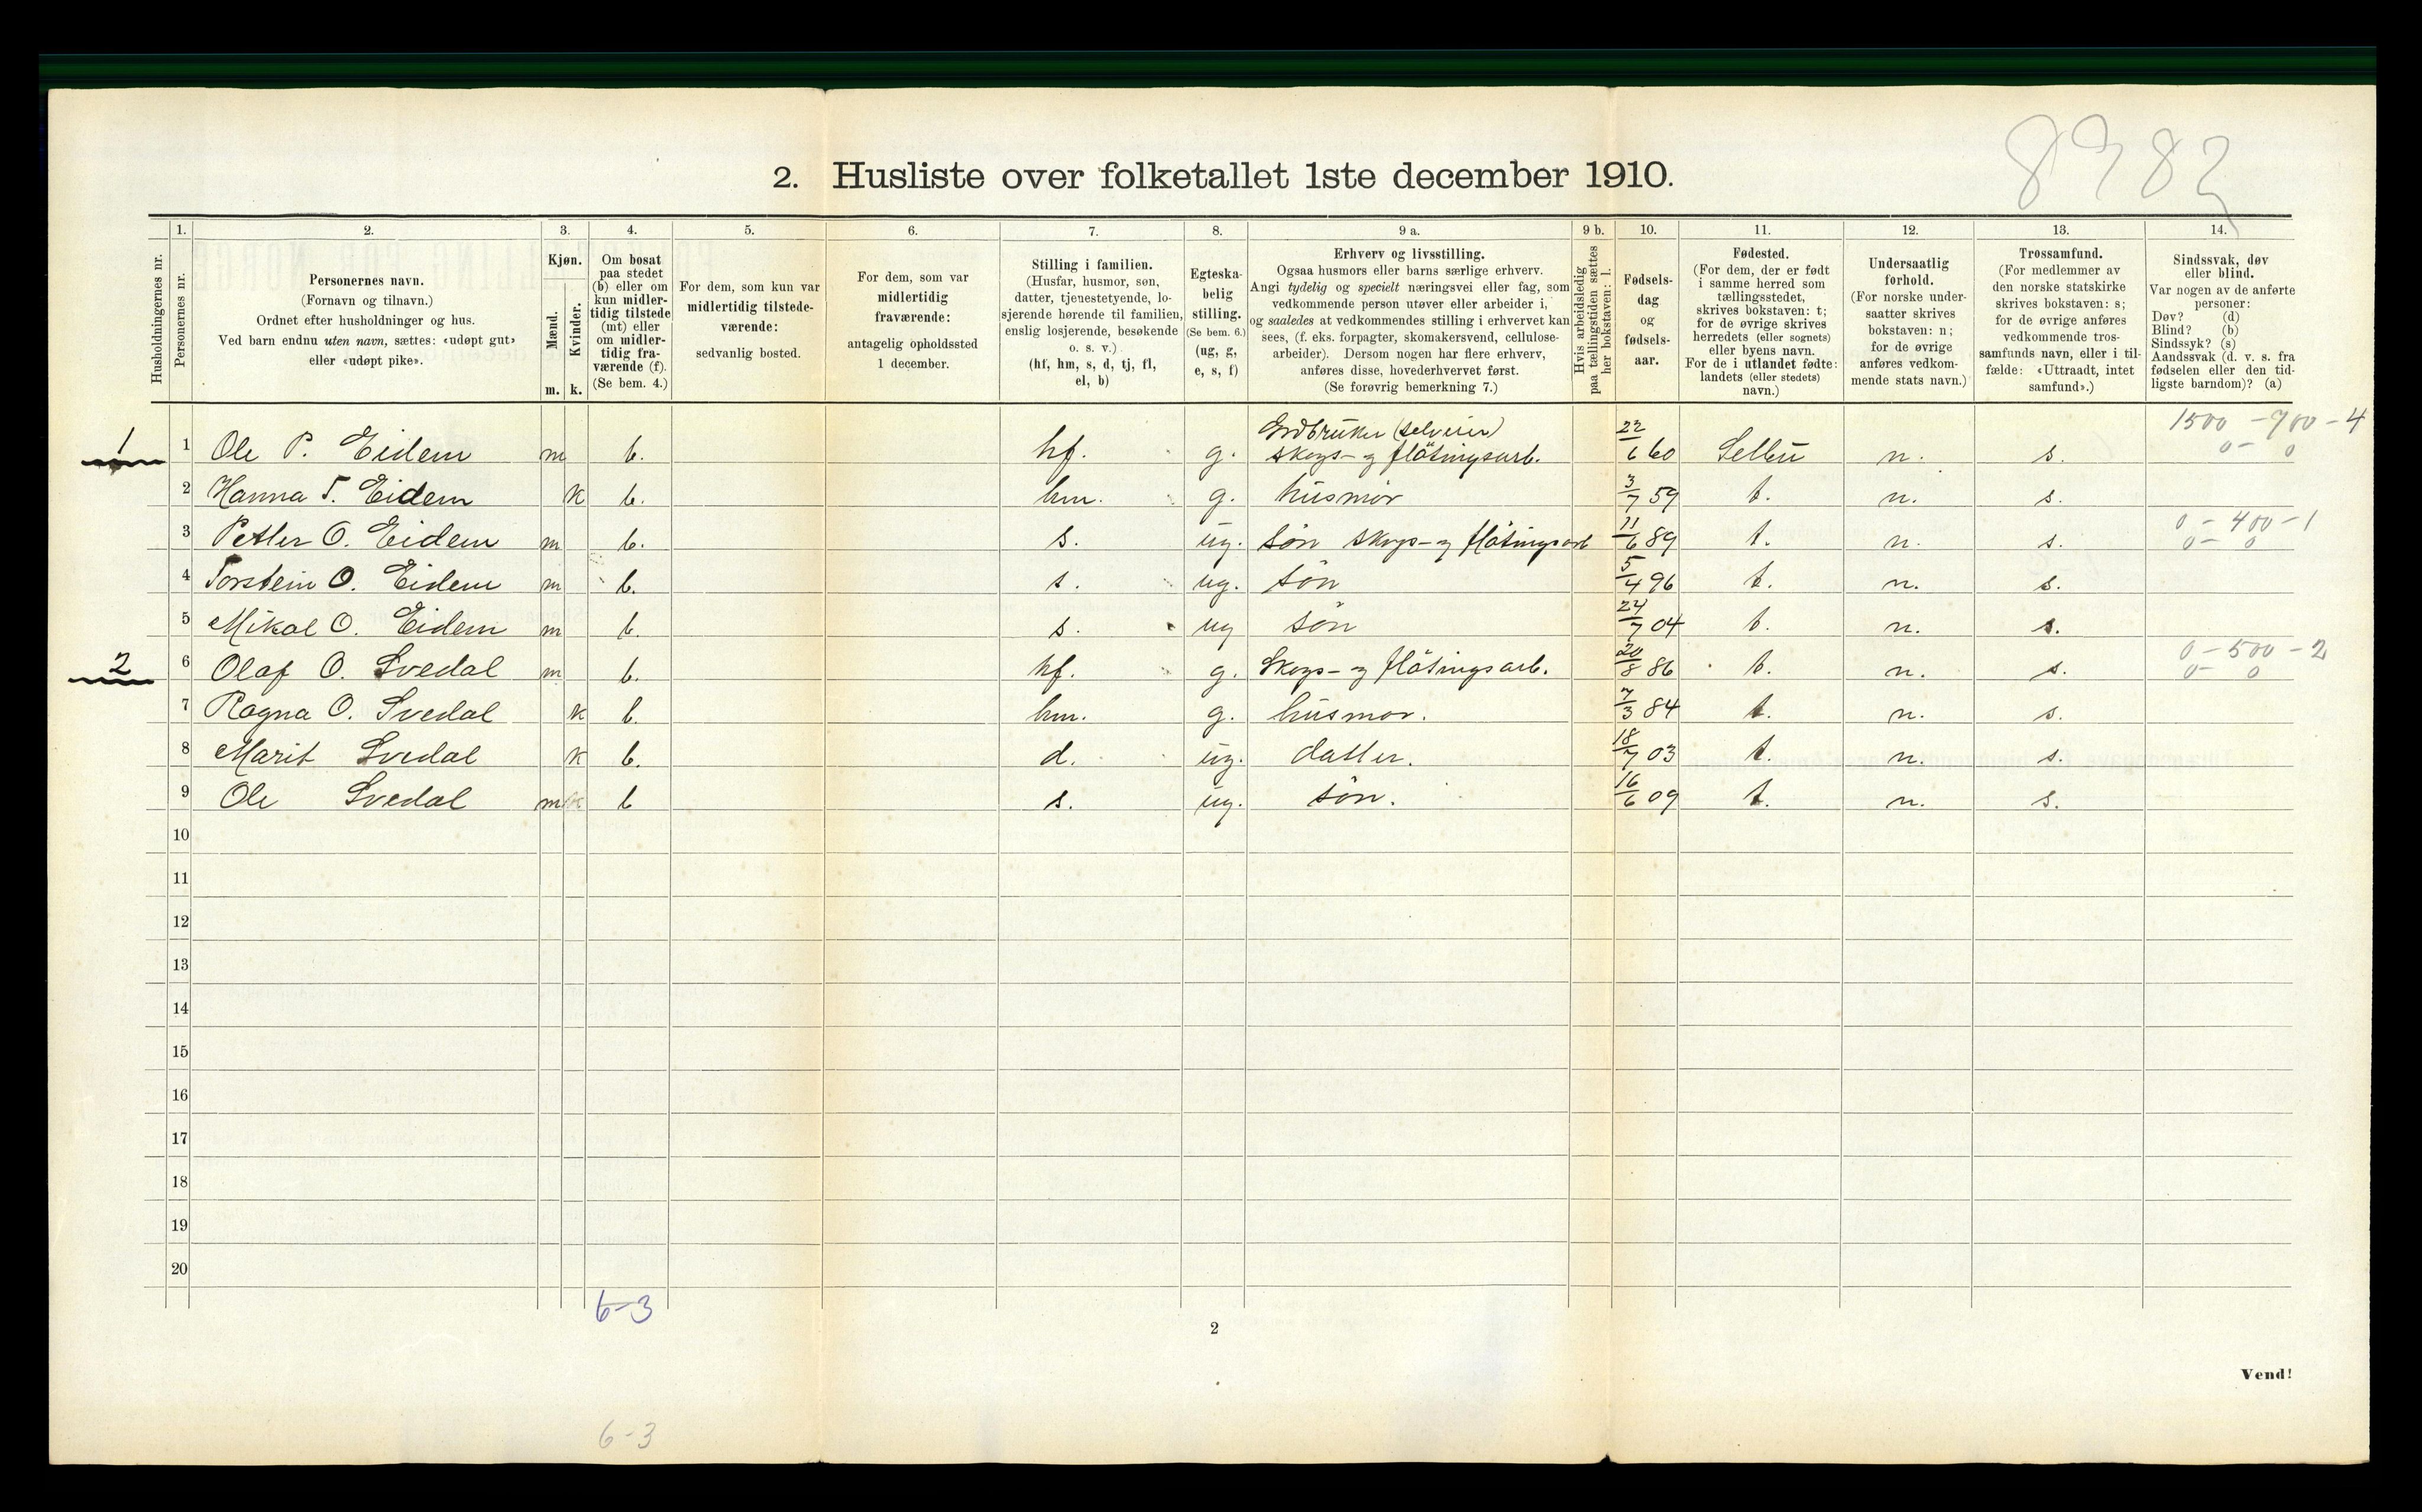 8982
2. Husliste over folketallet 1ste december 1910.
Husholdningernes nr.
1.
Personernes nr.
2.
Personernes navn.
(Fornavn og tilnavn.)
Ordnet efter husholdninger og hus.
Ved barn endnu uten navn, sættes: «udøpt gut»
eller «udøpt pike».
3.
Kjøn.
Mænd. Kvinder.
m. k.
4.
Om bosat
paa stedet
(b) eller om
kun midler-
tidig tilstede
(mt) eller
om midler-
tidig fra-
værende (f).
(Se bem. 4.)
5.
For dem, som kun var
midlertidig tilstede-
værende:
sedvanlig bosted.
6.
For dem, som var
midlertidig
fraværende:
antagelig opholdssted
1 december.
7.
Stilling i familien.
(Husfar, husmor, søn,
datter, tjenestetyende, lo-
sjerende hørende til familien,
enslig losjerende, besøkende
o. s. v.)
(hf, hm, s, d, tj, fl,
el, b)
8.
Egteska-
belig
stilling.
(Se bem. 6.)
(ug, g,
e, s, f)
9 a.
Erhverv og livsstilling.
Ogsaa husmors eller barns særlige erhverv.
Angi tydelig og specielt næringsvei eller fag, som
vedkommende person utøver eller arbeider i,
og saaledes at vedkommendes stilling i erhvervet kan
sees, (f. eks. forpagter, skomakersvend, cellulose-
arbeider). Dersom nogen har flere erhverv,
anføres disse, hovederhvervet først.
(Se forøvrig bemerkning 7.)
9 b.
Hvis arbeidsledig
paa tællingstiden sættes
her bokstaven: l.
10.
Fødsels-
dag
og
fødsels-
aar.
11.
Fødested.
(For dem, der er født
i samme herred som
tællingsstedet,
skrives bokstaven: t;
for de øvrige skrives
herredets (eller sognets)
eller byens navn.
For de i utlandet fødte:
landets (eller stedets)
navn.)
12.
Undersaatlig
forhold.
(For norske under-
saatter skrives
bokstaven: n;
for de øvrige
anføres vedkom-
mende stats navn.)
13.
Trossamfund.
(For medlemmer av
den norske statskirke
skrives bokstaven: s;
for de øvrige anføres
vedkommende tros-
samfunds navn, eller i til-
fælde: «Uttraadt, intet
samfund».)
14.
Sindssvak, døv
eller blind.
Var nogen av de anførte
personer:
Døv? (d)
Blind? (b)
Sindssyk? (s)
Aandssvak (d. v. s. fra
fødselen eller den tid-
ligste barndom)? (a)
1 1 Ole P. Eidem m b. hf. g. Grdbruker (selveier) skogs- og flötningsarb. 22/6 60 Selbu n. s. 1500 - 700 - 4 0 - 0
2 Hanna T. Eidem k b. hm. g. husmor 3/7 59 t. n. s.
3 Petter O. Eidem m b. s. ug. sön skogs- og flötningsarb 11/6 89 t. n. s. 0 - 400 - 1 0 - 0
4 Torstein O. Eidem m b. s. ug. sön 5/4 96 t. n. s.
5 Mikal O. Eidem m b. s. ug sön 24/7 04 t. n. s.
2 6 Olaf O. Svedal m b. hf. g. Skogs- og flötningsarb. 20/8 86 t. n. s. 0 - 500 - 2 0 - 0
7 Ragna O. Svedal k b. hm. g. husmor. 7/3 84 t. n. s.
8 Marit Svedal k b. d. ug. datter. 18/7 03 t. n. s.
9 Ole Svedal m k b s. ug. sön. 16/6 09 t. n. s.
10
11
12
13
14
15
16
17
18
19
20
6-3
2
Vend!
6-3